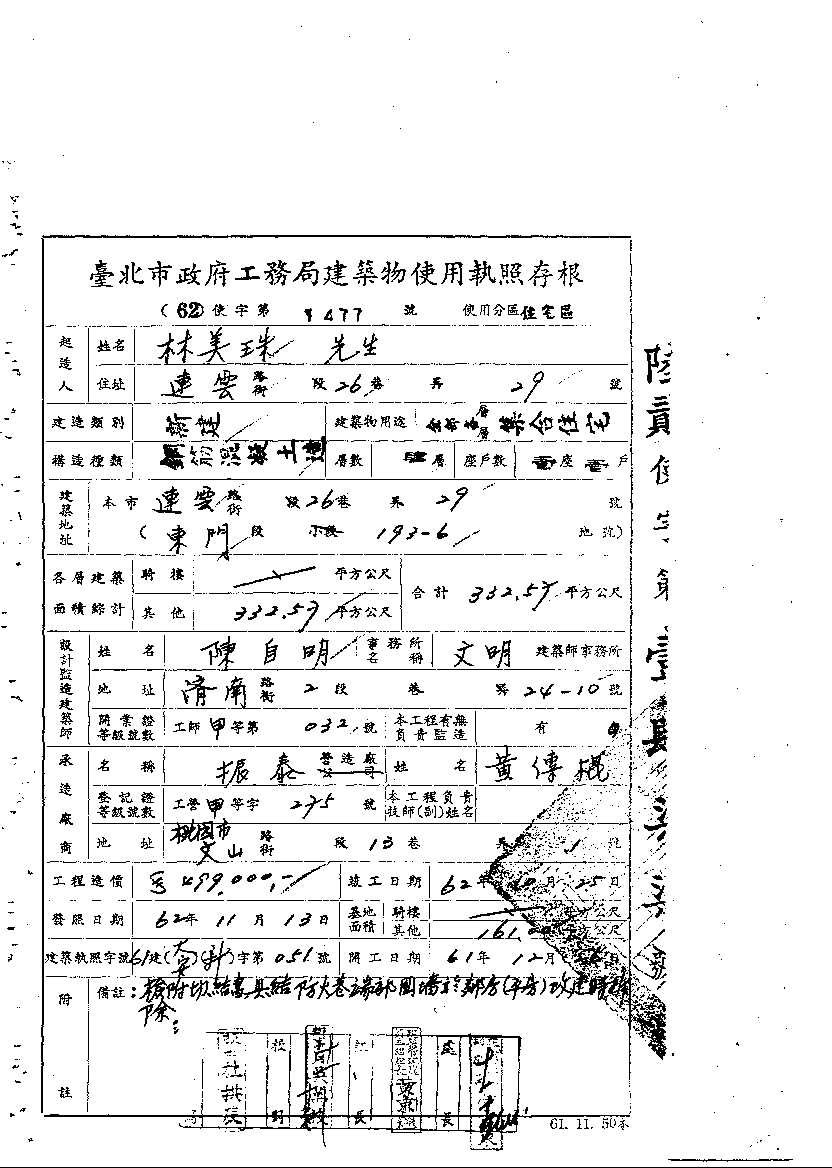 臺北市政府工務局建築物使用執照存根
(62)使字第 1477 號 使用分區住宅區
起造人 姓名 林美珠 先生
住址 連雲路街 段26巷 弄 29 號
建造類別 新建 建築物用途 全部 層 集合住宅
構造種類 鋼筋混凝土造 層數 層 座戶數 壹座 戶
建築地址 本市 連雲路街 段26巷 弄 29 號
(東門段 小段 193-6 地號)
各層建築面積綜計 騎樓 平方公尺 合計 332.57 平方公尺
其他 332.57 平方公尺
設計監造建築師 姓名 陳自明 事務所名稱 文明 建築師事務所
地址 濟南路街 2段 巷 弄 24-10號
開業證等級號數 工師甲等第 032 號 本工程有無負責監造 有
承造廠商 名稱 振泰 營造廠公司 姓名 黃傳
登記證等級號數 工營甲等字 275 號 本工程負責技師(副)姓名
地址 桃園市文山路街 段13巷 弄 1 號
工程造價 499,000,- 竣工日期 62年10月25日
發照日期 62年11月13日 基地面積 騎樓 平方公尺
其他 161.00 平方公尺
建築執照字號 61建( )( )字第051號 開工日期 61年12月 日
附註 備註:
除:
長
61.11.50本
陸貳使字第壹